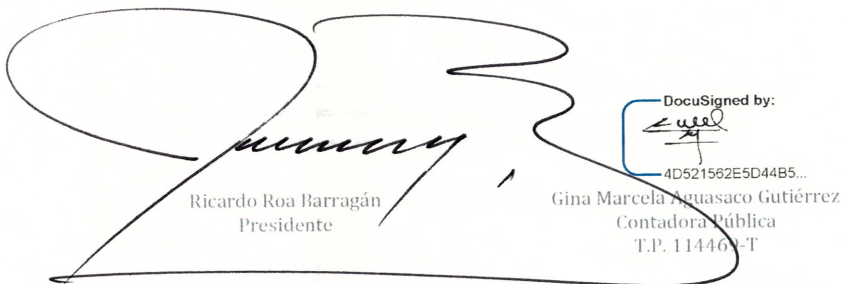 Ricardo Roa Barragán
Presidente
DocuSigned by:
4D521562E5D44B5...
Gina Marcela Aguasaco Gutiérrez
Contadora Pública
T.P. 114469-T